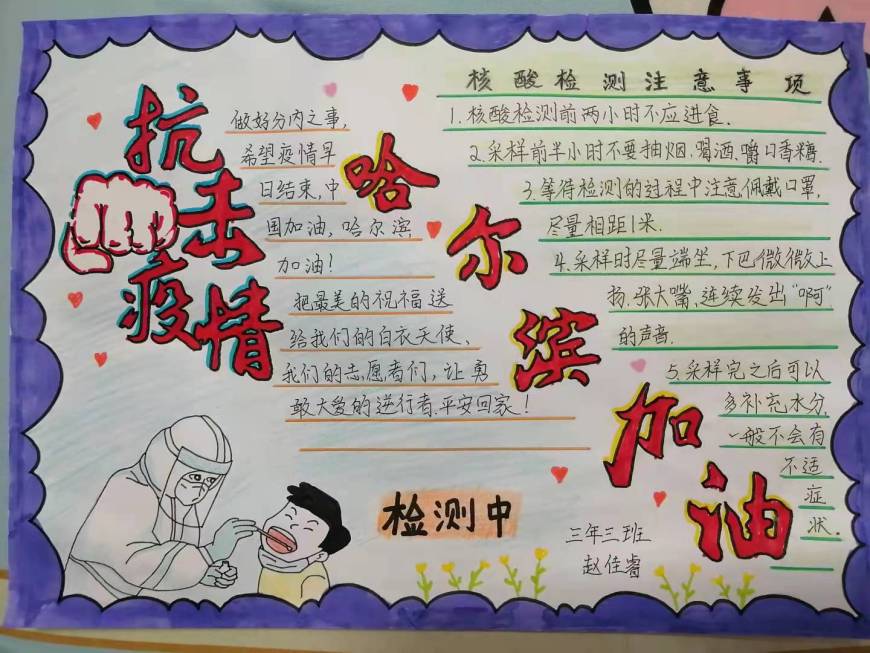 抗击疫情
做好分内之事,
希望疫情早
日结束,中
国加油,哈尔滨
加油!
把最美的祝福送
给我们的白衣天使、
我们的志愿者们,让勇
敢大爱的逆行者.平安回家!
哈尔滨加油
核酸检测注意事项
1.核酸检测前两小时不应进食.
2.采样前半小时不要抽烟、喝酒、嚼口香糖.
3.等待检测的过程中注意佩戴口罩,
尽量相距1米.
4.采样时尽量端坐,下巴微微上
扬,张大嘴,连续发出“啊”
的声音.
5.采样完之后可以
多补充水分,
一般不会有
不适
症
状.
检测中
三年三班
赵佳睿